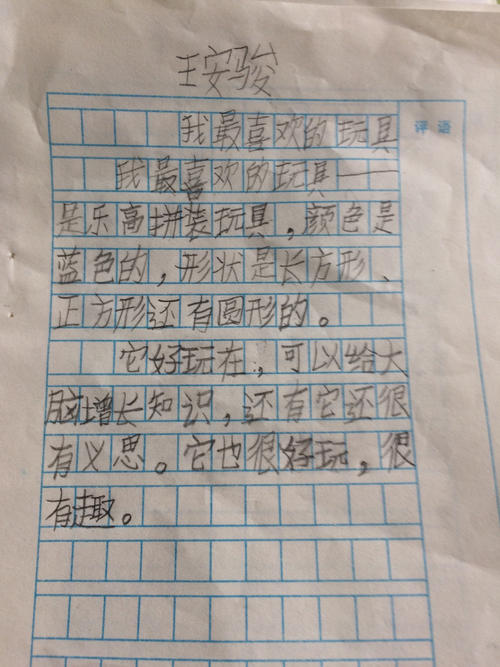 王安骏
评语
我最喜欢的玩具
我最喜欢的玩具——
是乐高拼装玩具，颜色是
蓝色的，形状是长方形、
正方形还有圆形的。
它好玩在，可以给大
脑增长知识，还有它还很
有义思。它也很好玩，很
有趣。